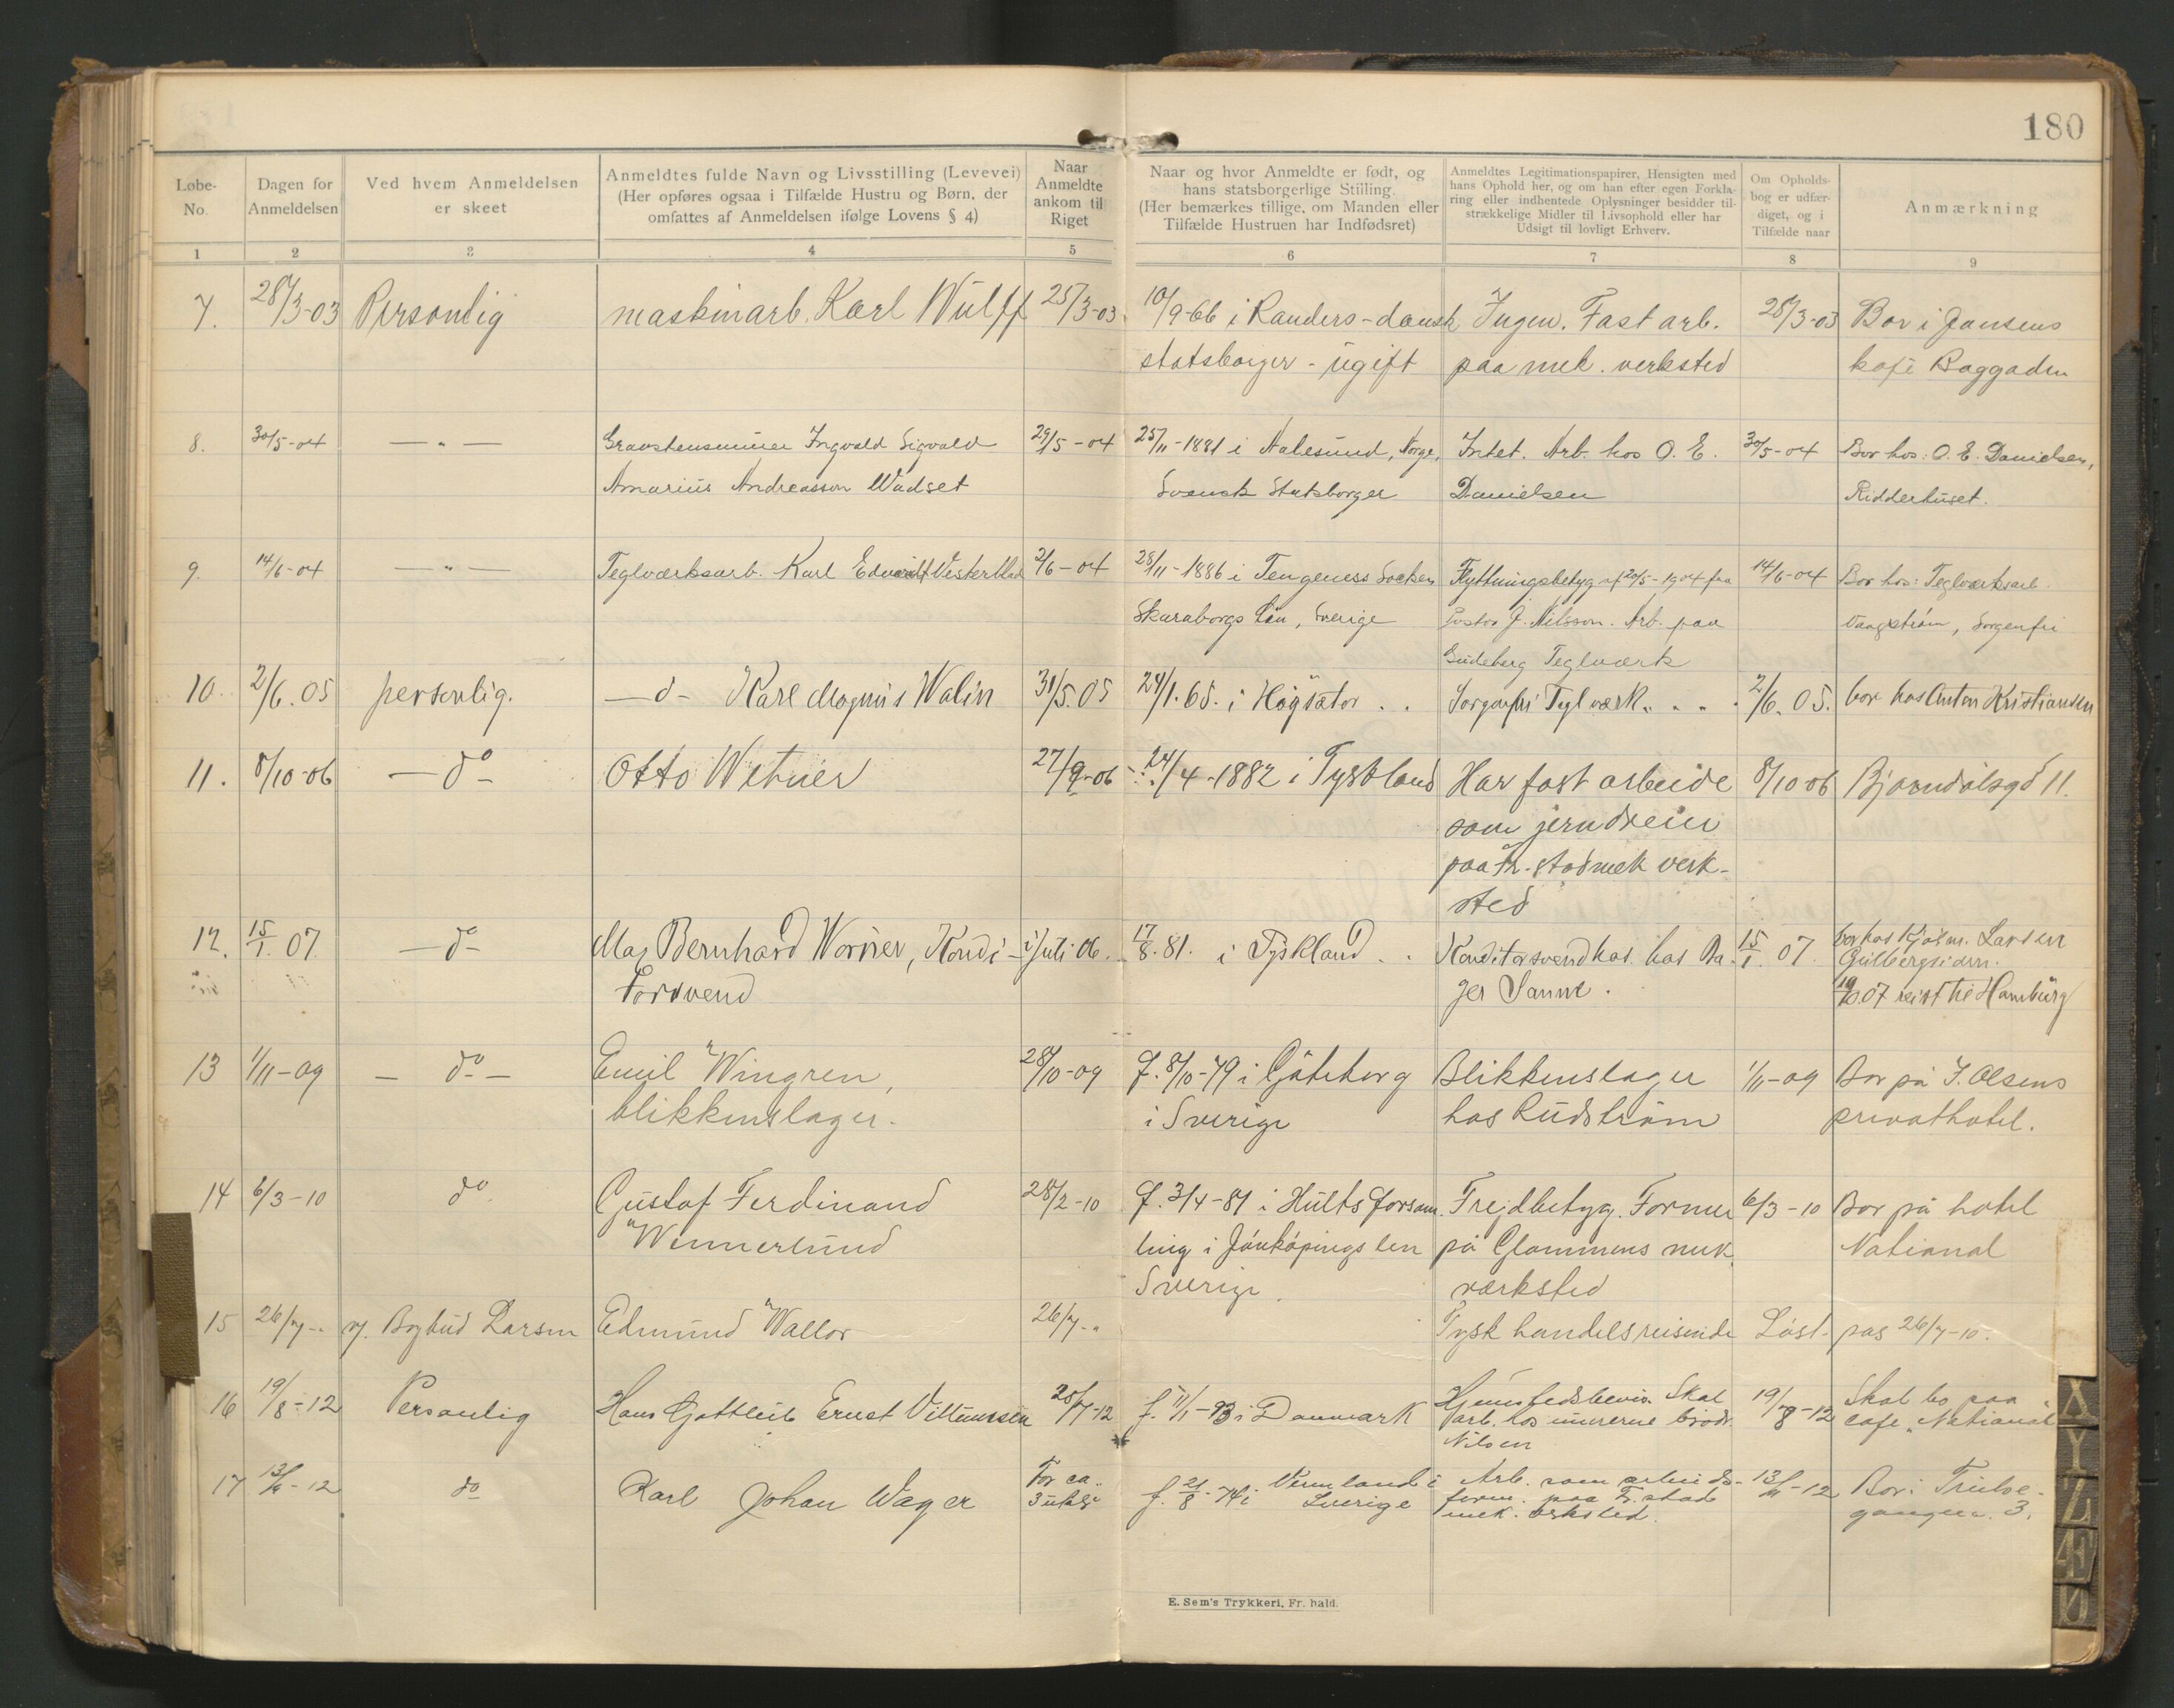 180
Løbe-
No.
Dagen for
Anmeldelsen
Ved hvem Anmeldelsen
er skeet
Anmeldtes fulde Navn og Livsstilling (Levevei)
(Her opføres ogsaa i Tilfælde Hustru og Børn, der
omfattes af Anmeldelsen ifølge Lovens § 4)
Naar
Anmeldte
ankom til
Riget
Naar og hvor Anmeldte er født, og
hans statsborgerlige Stilling.
(Her bemærkes tillige, om Manden eller
Tilfælde Hustruen har Indfødsret)
Anmeldtes Legitimationspapirer, Hensigten med
hans Ophold her, og om han efter egen Forkla-
ring eller indhentede Oplysninger besidder til-
strækkelige Midler til Livsophold eller har
Udsigt til lovligt Erhverv.
Om Opholds-
bog er udfær-
diget, og i
Tilfælde naar
Anmærkning
1 2 3 4 5 6 7 8 9
7. 28/3-03 Personlig maskinarb. Karl Wulff 25/3-03. 10/9-66 i Randers - dansk Ingen. Fast arb. 28/3-03 Bor i Jansens
statsborger - ugift paa mek. verksted kafé Baggaden
8. 30/5-04 — " — Gravstensminer Ingvald Sigvald 29/5-04 25/11-1881 i Aalesund, Norge, Intet. Arb. hos O. E. 30/5-04 Bor hos: O. E. Danielsen,
Amarius Andreasson Wadset Svensk Statsborger Danielsen Ridderhuset.
9. 14/6-04 — " — Teglværksarb. Karl Edvardt Vesterblad 2/6-04 28/11-1886 i Tengeness Socken Flyttningsbetyg af 20/5-1904 fra 14/6-04 Bor hos: Teglværksarb.
Skaraborgs Län, Sverige Pastor J. Nilsson. Arb. paa Vangström, Sorgenfri
Gudeberg Teglværk
10. 2/6.05 personlig. — d - Karl Magnus Walin 31/5.05 24/1.65. i Högsäter . . Sorgenfri Teglværk. . . . 2/6.05. bor hos Anton Kristiansen
11. 8/10-06 — do - Otto Wetner 27/9-06 24/4-1882 i Tyskland Har fast arbeide 8/10-06 Bjørndalsgd 11.
som jerndreier
paa Fr.stad mek verk-
sted
12. 15/1.07. — do - Max Bernhard Worner, Kondi- i Juli 06. 17/8.81. i Tyskland . . Konditorsvend hos Ba- 15/1.07. bor hos Kjøbm. Larsen
torsvend ger Sanne. Gulbergsiden.
19/10.07 reist til Hamburg
13 1/11-09 — do — Emil Wingren, 28/10-09 f. 8/10-79 i Göteborg Blikkenslager 1/11-09 Bor på J. Olsens
blikkenslager. i Sverige hos Rudström privathotel.
14 6/3-10 do Gustaf Ferdinand 28/2-10 f. 3/4-81 i Hults forsam- Frejdbetyg. Former 6/3-10 Bor på hotel
Wennerlund ling i Jönköpings len på Glommens mek. National
Sverige. værksted
15 26/7-" v. Bybud Larsen Edmund Wallor 26/7-" Tysk handelsreisende Løst- pas 26/7-10.
16 19/8-12 Personlig Hans Gottleib Ernst Villumssen 25/7-12 f. 11/1-93 i Danmark Hjemstedsbevis. Skal 19/8-12 Skal bo paa
arb. hos murerne brødr. cafe "National
Nilsen
17 13/11-12 do Karl Johan Wager For ca. f. 21/8-74 i Vermland i Arb. som arbeids- 13/11-12 Bor i Trulse-
3 uker Sverige form. paa Fr.stad gangen. 3.
mek. verksted.
E. Sem's Trykkeri, Fr. hald.
X
Y
Z
Æ
Ø